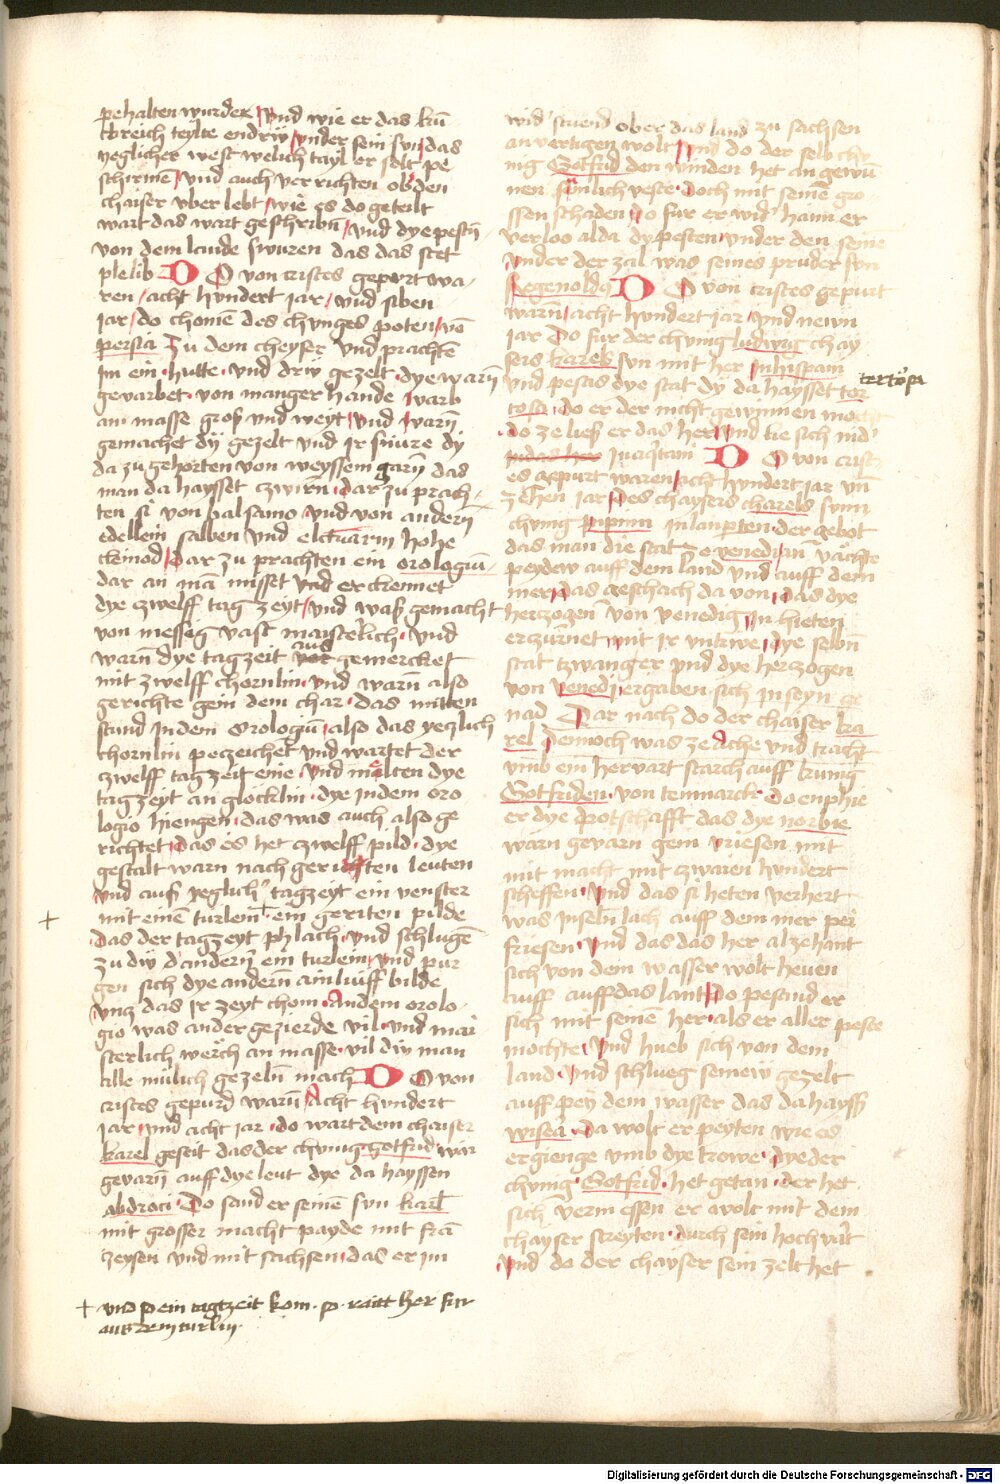 pehalten wurder Vnd wie er das ku̅
kreich teylte endriv̈ vnder sein sun das
yeglicher west welich tayl er solt pe
schirme̅ vnd auch verrichten ob den
chaiser vber lebt wie es do geteilt
wart das wart geschribn̅ vnd dye pestn̅
von dem lande swuren das das stet
plelib D O von cristes gepurt wa
ren acht hundert iar vnd siben
iar do chome̅ des chunges poten vo̅
persia zu dem cheyser vnd prachte̅
Im ein hutte vnd driv̈ gezelt dye warn̅
gevarbet von manger hande varb
an masse gros vnd weyt vnd warn̅
gemachet dÿ gezelt vnd Ir snure dÿ
da zu gehorten von weyssem garn̅ das
man da haysset zwirn dar zu prach
ten si von balsamo vnd von andern̅
edellein salben vnd electuarin hohe
cleinod dar zu prachten ein orologiu̅
dar an ma̅ misset vnd erchennet
dye zwelff tag zeyt vnd was gemacht
von messeg vast maisterlich vnd
warn̅ dye tagzeit aus gemercket
mit zwelff chornlin vnd warn̅ also
gerichte gein dem char das mitten
stund In dem Orologiu̅ also das yeglich
chornlin pezeichet vnd wartet der
zwelff tagzeit eine vnd melten dye
tagzeyt an glocklin dye In dem oro
logio hiengen das was auch also ge
richtet das es het zwelff pild dye
gestalt warn nach geriten leuten
vnd auf yeglich tagzeyt ein venster
mit eine̅ turlein + ein geriten pilde
das der tagzeyt phlach vnd schluge̅
zu div̈ d'andern̅ ein turlein vnd pur
gen sich dye andern̅ ainluiff bilde
vnz das Ir zeyt chom An dem orolo
gio was ander gezierde vil vnd mai
sterlich werch an masse vil div̈ man
alle mulich gezeln̅ mach D O von
cristes gepurd waru̅ acht hundert
iar vnd acht iar do wart dem chaiser
karel geseit das der chunig gotfrid wär
gevarn̅ auff dye leut dye da hayssen
abdroci Do sand er seine̅ sun karl̅
mit grosser macht payde mit fra̅
zeysen vnd mit sachsen das er im
+ vnd so ein tagzeit kom so raitt her fur
aus dem turlin
wid' stuend ober das land zu sachsen
an vertigen wolt Vnd do der selb chu
nig Gotfrid den winden het an gewu̅
nen semlich veste doch mit seine̅ gro
ssen schaden do fur er wid' haim er
verloo alda dy pesten vnder den seine
vnder der zal was seines pruder sun
Regenoldo D O von cristes gepurt
warn̅ acht hundert iar vnd newn
iar Do fur der chunig ludwig chay
sers karels sun mit her In hispani
vnd pesas dye stat dÿ da haysset tor
tosa do er der nicht gewinnen mocht
tertosa
do ze lies er das her vnd lie sich nid'
In aq̅tam D O von crist
es gepurt waren acht hundert iar vn̅
zehen iar Des chaysers charels sunn
chunig Pipinn In lanparten der gebot
das man die stat ze venedi an vächte
peydew auff dem land vnd auff dem
mer das geschach da von das dye
herzogen von venedig In hieten
erzurnet mit Ir untrwe dye selbn̅
stat tzwanger vnd dye herzogen
von Venedi ergaben sich In seyn ge
nad Dar nach do der chaiser ka
rel dennoch was ze Ache vnd tracht
vmb ein hervart starch auff kunig
Gotfriden von tenmarck Do enphie
er dye potschafft das dye norbie
warn gevarn gein vriesen mit
mit macht mit zwaien hundert
scheffen Vnd das si heten verhert
was Inseln lach auff dem mer pei
friesen Vnd das das her alzehant
sich von dem wasser wolt heven
auff auff das lant Do pesand er
sich mit seine̅ her als er aller peste
mochte Vnd hueb sich von dem
land vnd schlueg seinew gezelt
auff pey dem wasser das da hayss̅
wisea da wolt er peyten wie es
ergienge vmb dye trowe dye der
chunig Gotfrid het getan der het
sich vermessen er wolt mit dem
chayser streyten durch sein hochvart
Vnd do der chayser sein zelt het
Digitalisierung gefördert durch die Deutsche Forschungsgemeinschaft - DFG